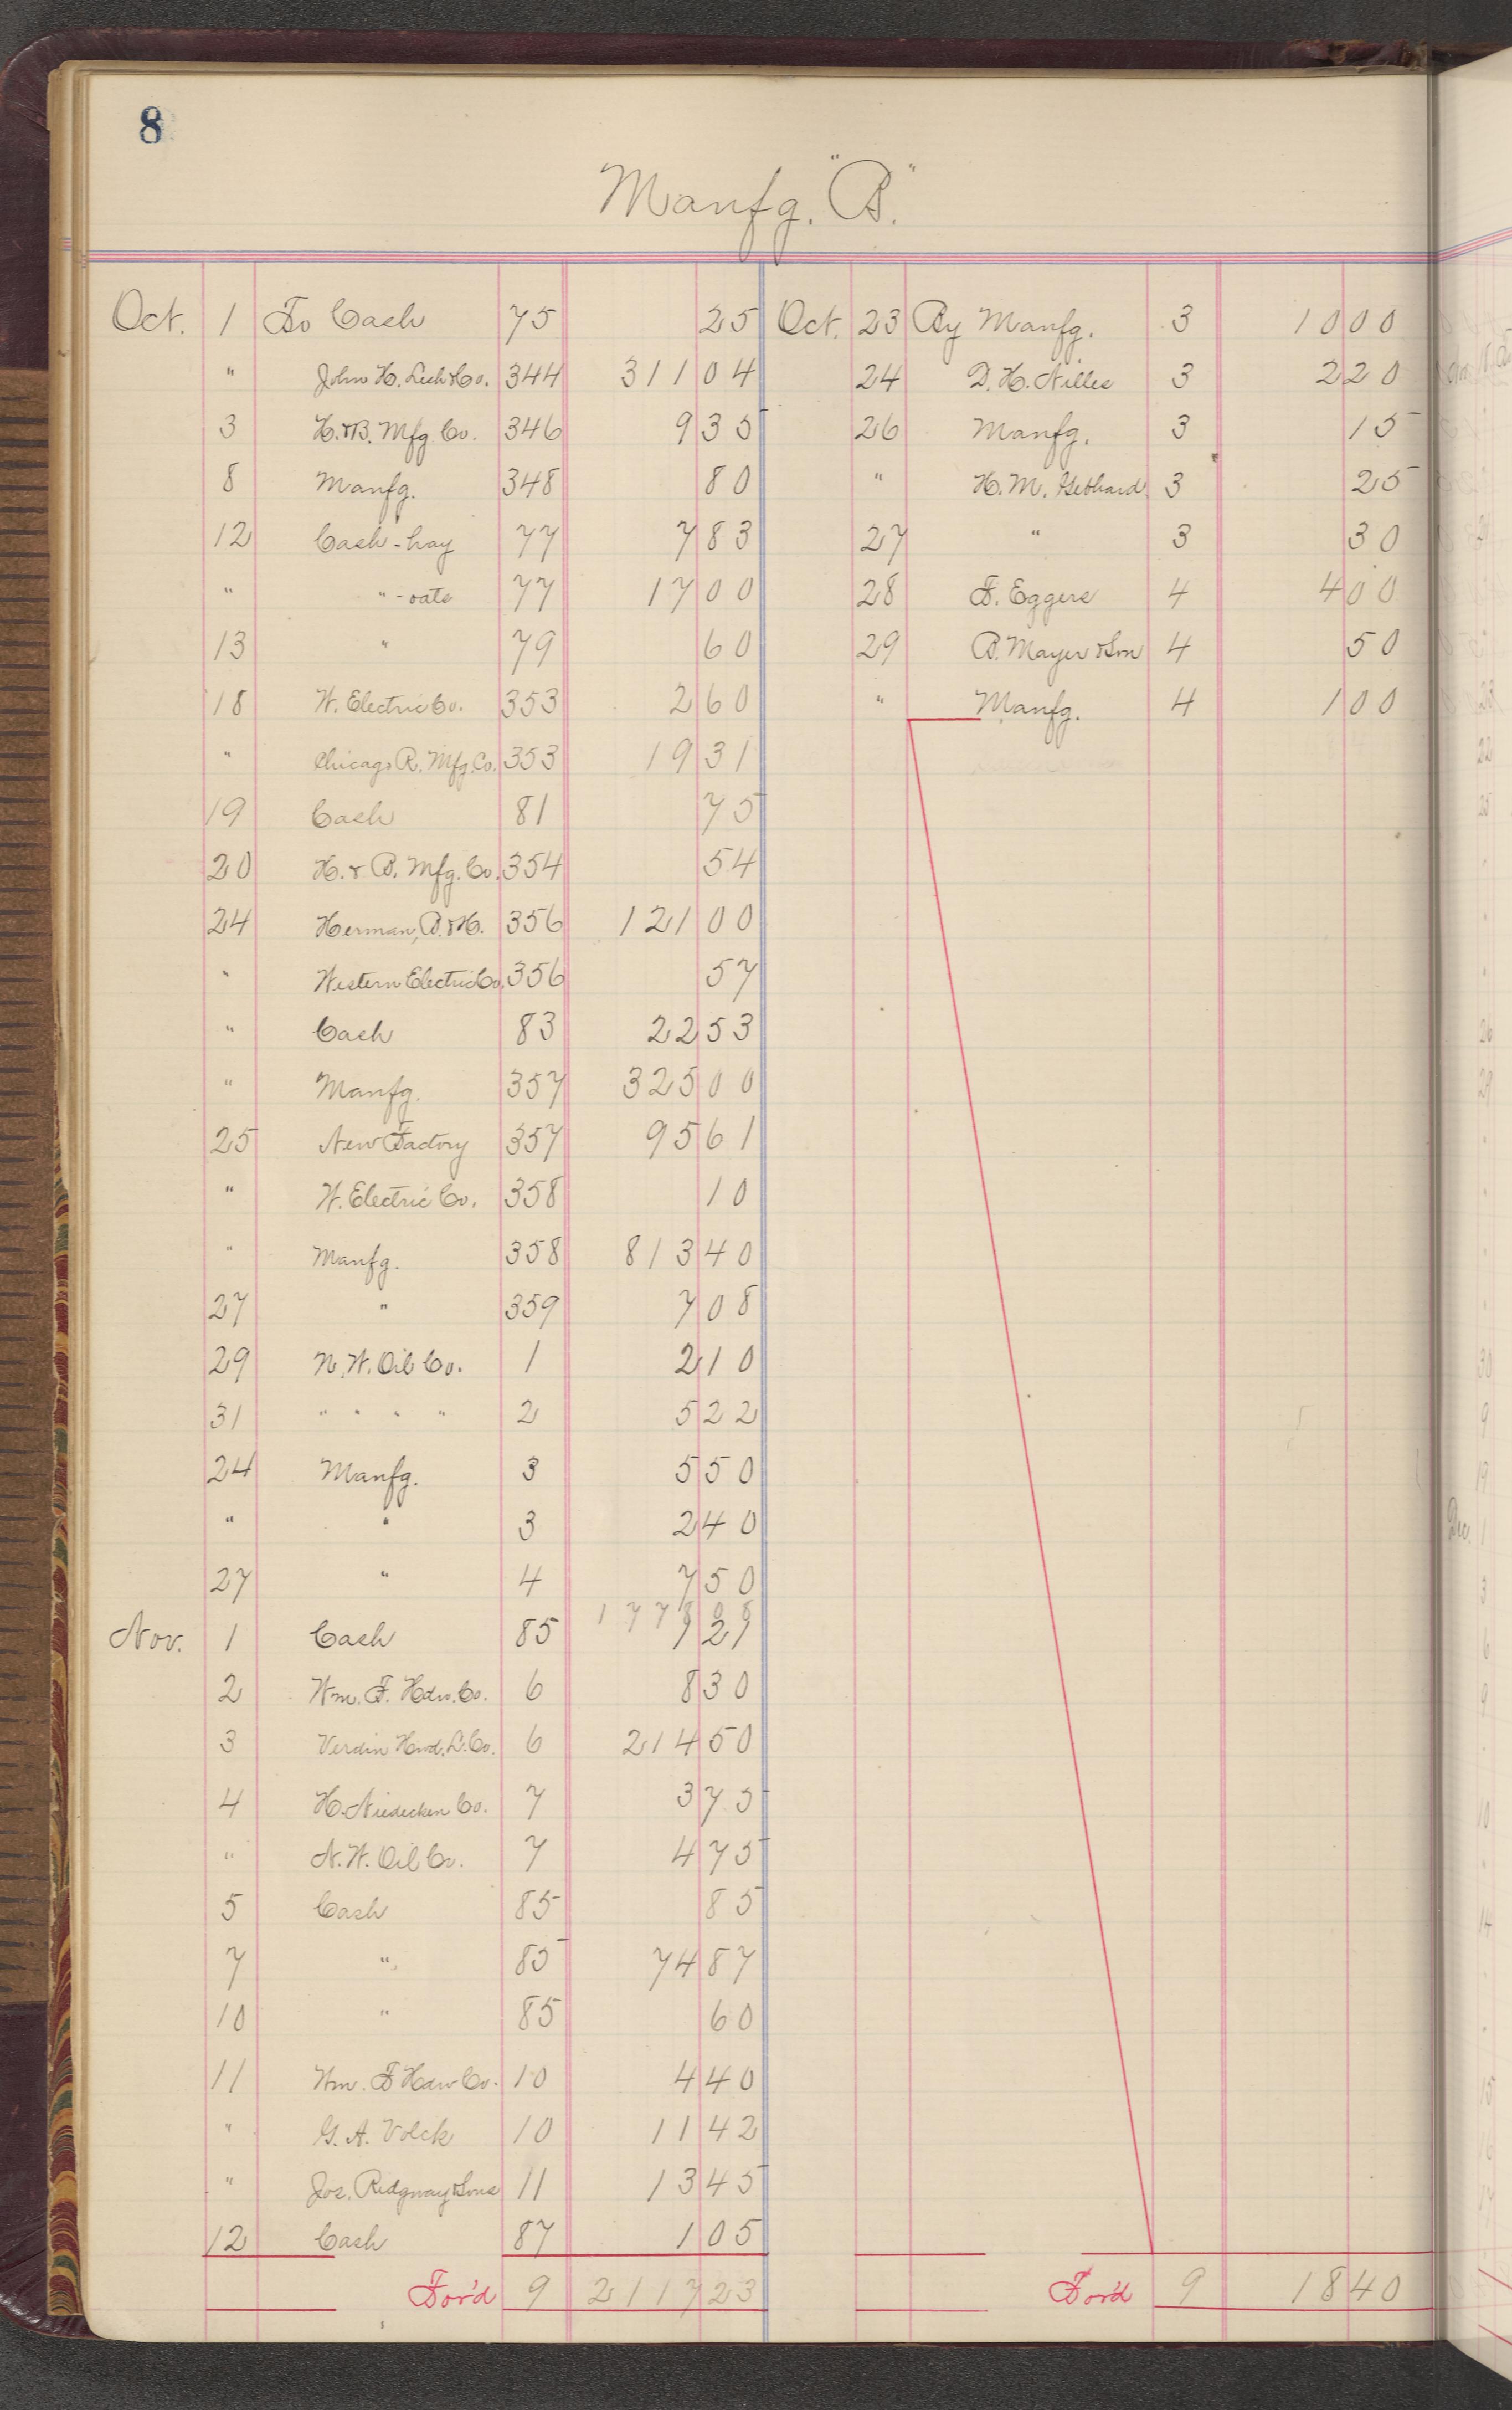 8
Manfg. "B."
Oct. 1 To Cash 75 25
" John H. Lesh & Co. 344 311 04
3 H. & B. Mfg. Co. 346 9 35
8 Manfg. 348 80
12 Cash - hay 77 7 83
" " - oats 77 17 00
13 " 79 60
18 W. Electric Co. 353 2 60
" Chicago R. Mfg. Co. 353 19 31
19 Cash 81 75
20 H. & B. Mfg. Co. 354 54
24 Herman, B. & H. 356 121 00
" Western Electric Co. 356 57
" Cash 83 22 53
" Manfg. 357 325 00
25 New Factory 357 95 61
" W. Electric Co. 358 10
" Manfg. 358 813 40
27 " 359 7 08
29 N. W. Oil Co. 1 2 10
31 " " " " 2 5 22
24 Manfg. 3 5 50
" " 3 2 40
27 " 4 7 50
1778 08
Nov. 1 Cash 85 1 21
2 Wm. F. Hdw. Co. 6 8 30
3 Verdin Hwd. L. Co. 6 214 50
4 H. Niedecken Co. 7 3 75
" N. W. Oil Co. 7 4 75
5 Cash 85 85
7 " 85 74 87
10 " 85 60
11 Wm. F Hdw Co. 10 4 40
" G. A. Volck 10 11 42
" Jos. Ridgway & Sons 11 13 45
12 Cash 87 1 05
For'd 9 2117 23
Oct. 23 By Manfg. 3 10 00
24 D. H. Nilles 3 2 20
26 Manfg. 3 15
" H. M. Gebhard 3 25
27 " 3 30
28 F. Eggers 4 4 00
29 B. Mayer & Son 4 50
" Manfg. 4 1 00
For'd 9 18 40